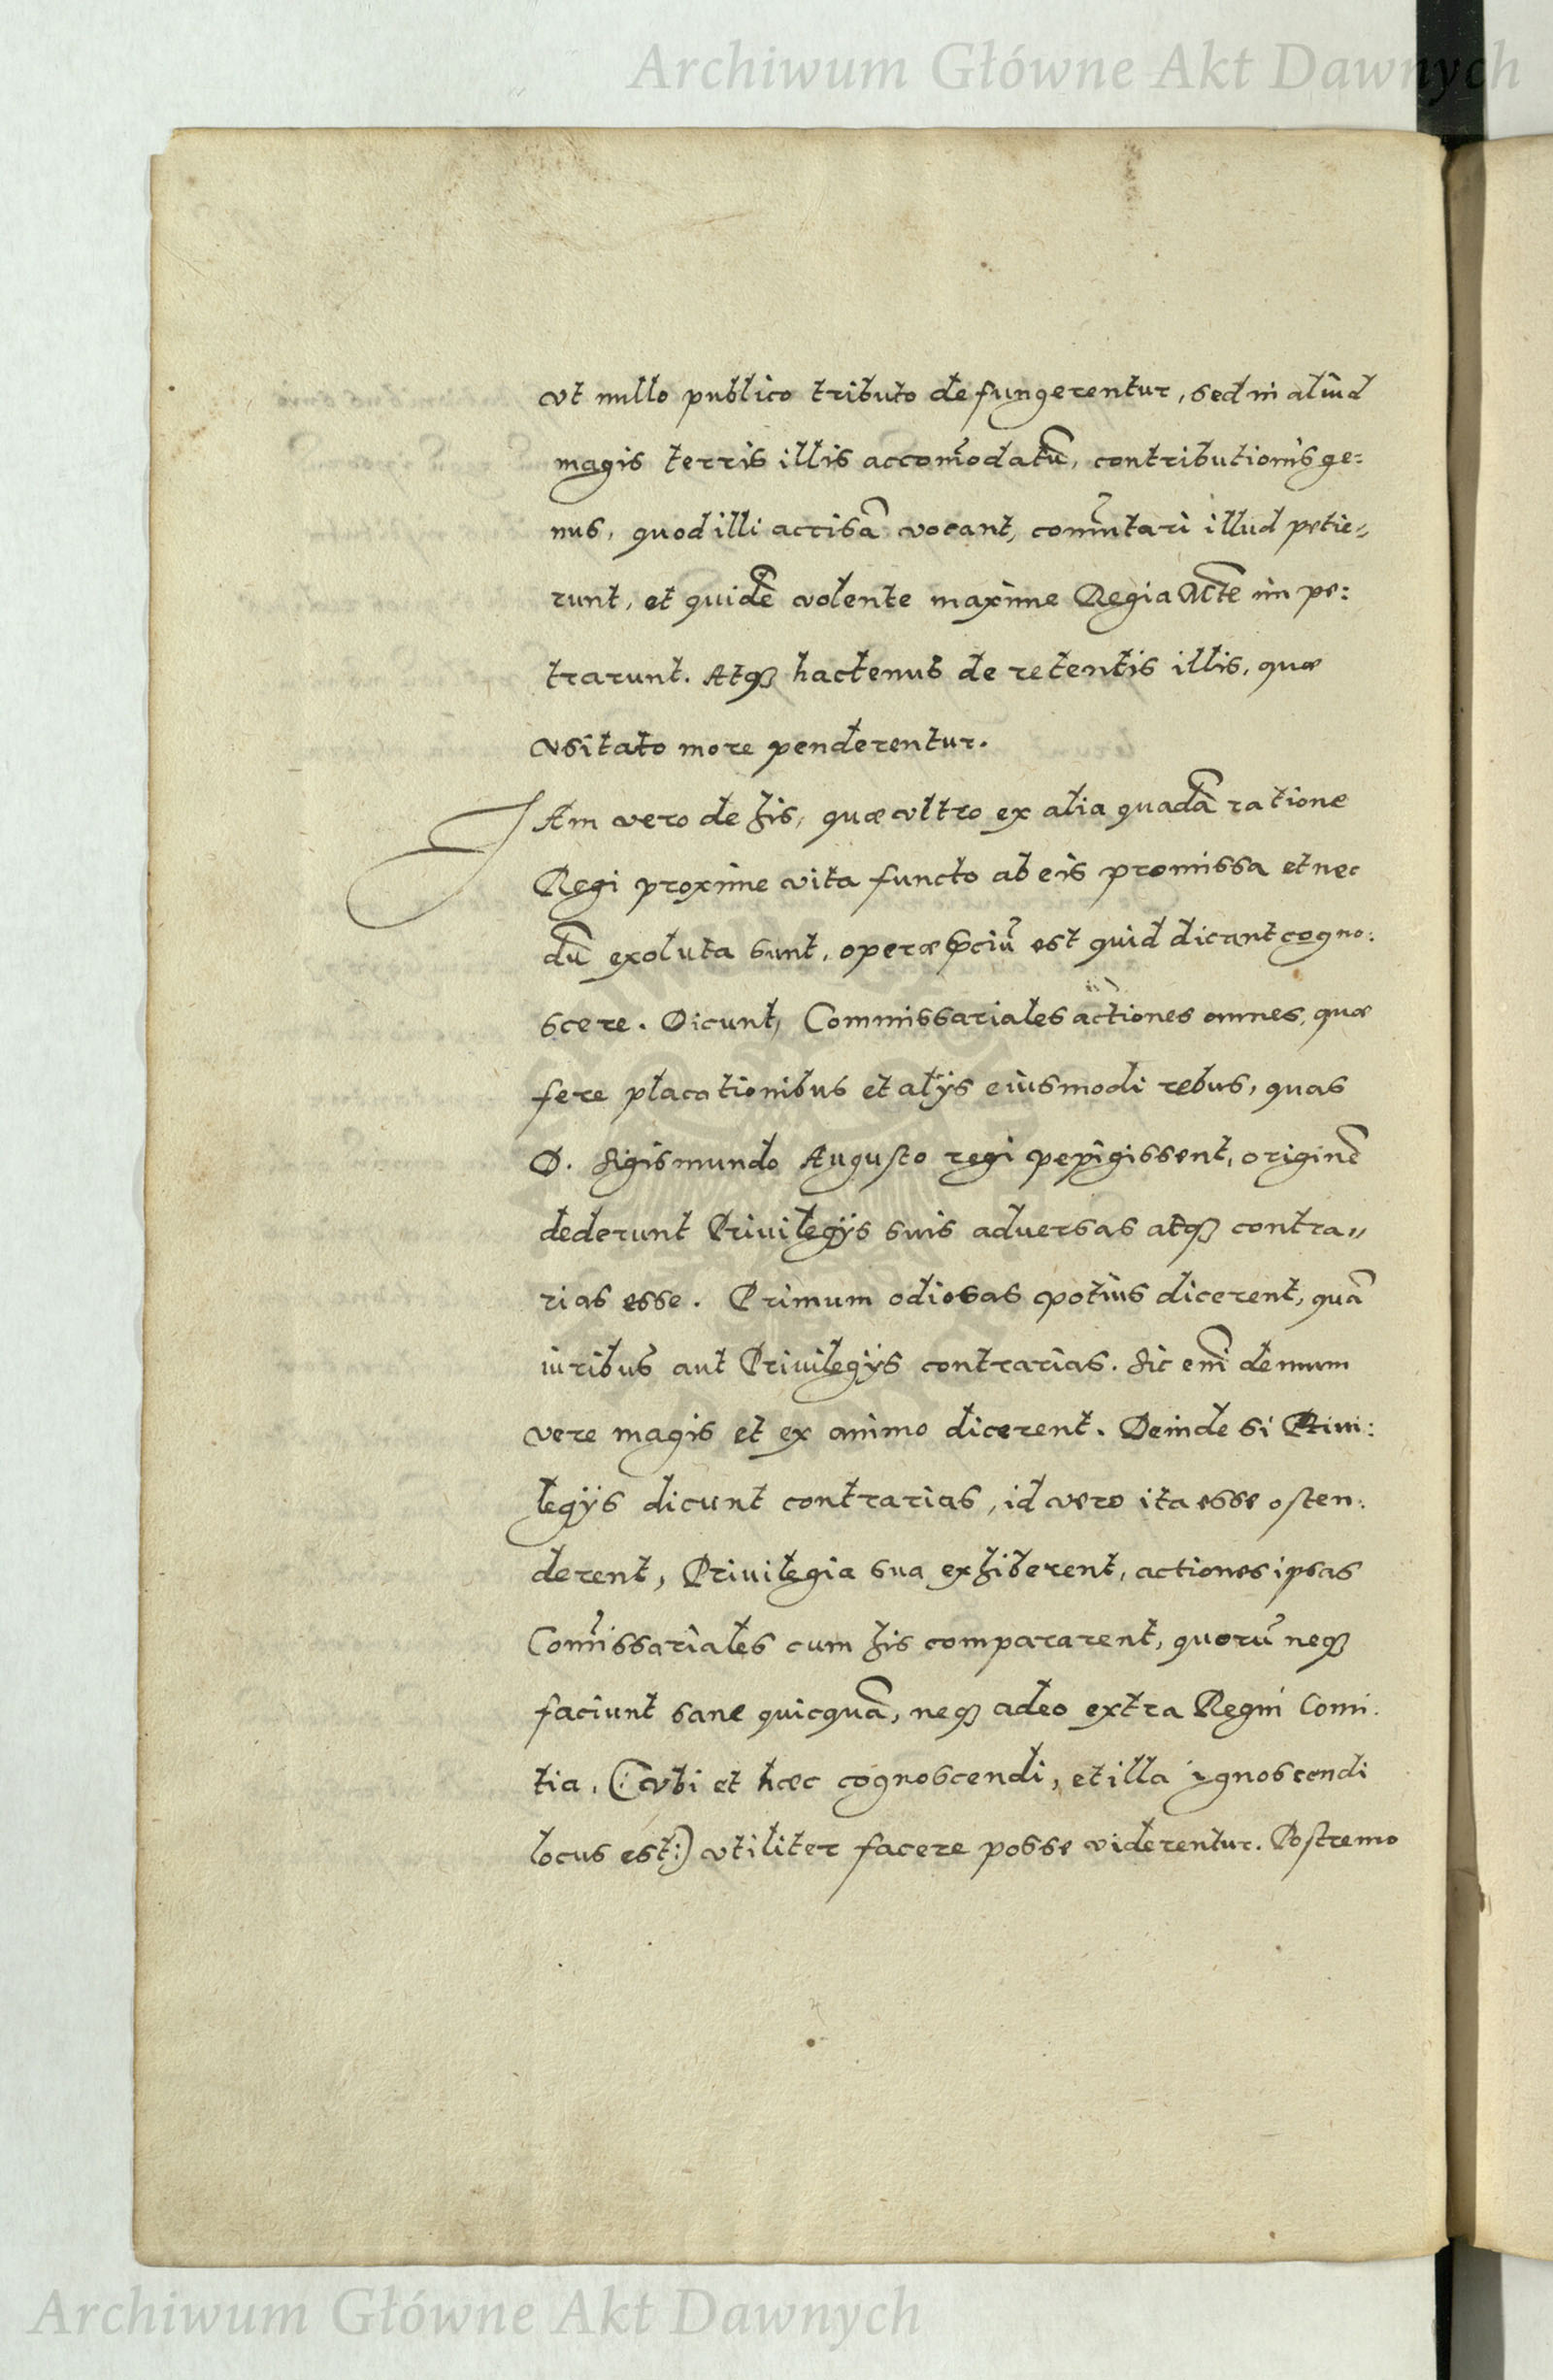 Archiwum Główne Akt Dawnych
vt nullo publico tributo defungerentur, sed in aliud
magis terris illis accom̃odatũ, contributionis ge:
nus, quod illi accisã vocant, com̃utari illud petie„
runt, et quidẽ volente maxime Regia Mte͂ im pe:
trarunt. Atqꝫ hactenus de retentis illis, quæ
vsitato more penderentur.
JAm vero de his, quæ vltro ex alia quadã ratione
Regi proxime vita functo ab eis promissa et nec
dũ exoluta sunt, operæp̃ciũ est quid dicant cogno:
scere. Dicunt, Commissariales actiones omnes, quæ
fere placationibus et alijs eiusmodi rebus, quas
D. Sigismundo Augusto regi pepigissent, originẽ
dederunt Priuilegijs suis aduersas atqꝫ contra„
rias esse. Primum odiosas potius dicerent, quã
iuribus aut Priuilegijs contrarias. Sic enĩ demum
vere magis et ex animo dicerent. Deinde si Priui:
legijs dicunt contrarias, id vero ita esse osten:
derent, Priuilegia sua exhiberent, actiones ipsas
Com̃issariales cum his compararent, quorũ neqꝫ
faciunt sane quicquã, neqꝫ adeo extra Regni Comi:
tia. (:vbi et hæc cognoscendi, et illa ignoscendi
locus est:) vtiliter facere posse viderentur. Postremo
Archiwum Główne Akt Dawnych